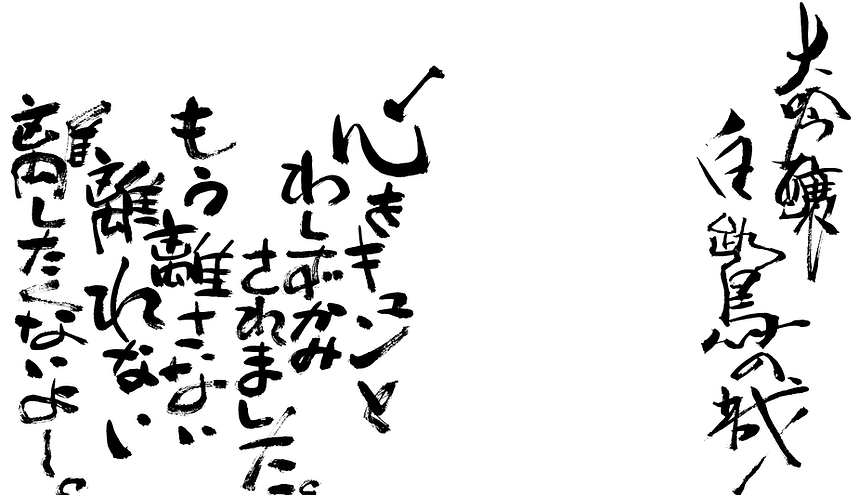 心をキュンと
わしずかみ
されました。
もう離さない
離れない
離したくないよー。